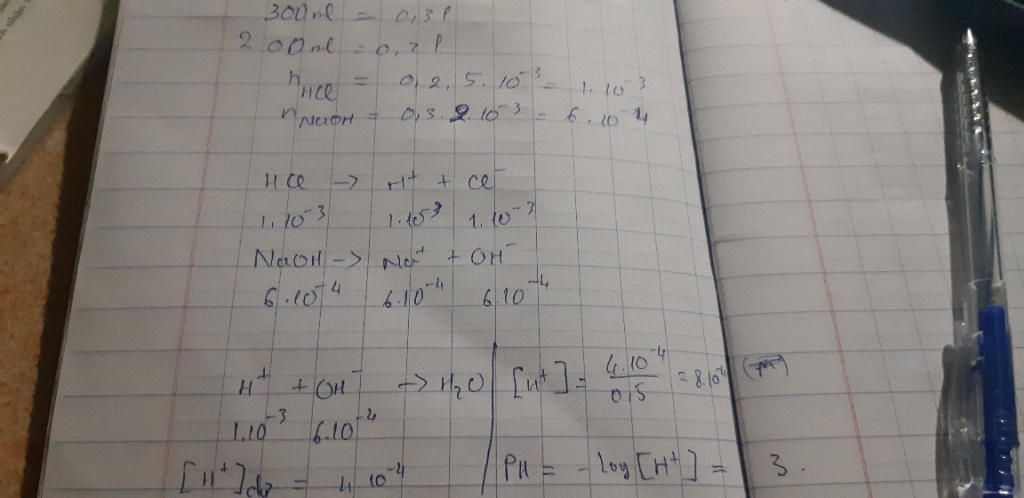 300ml = 0,3l
200ml = 0,2l
n HCl = 0,2. 5.10⁻³ = 1.10⁻³
n NaOH = 0,3.2.10⁻³ = 6.10⁻⁴
HCl -> H⁺ + Cl⁻
1.10⁻³ 1.10⁻³ 1.10⁻³
NaOH -> Na⁺ + OH⁻
6.10⁻⁴ 6.10⁻⁴ 6.10⁻⁴
H⁺ + OH⁻ -> H₂O
1.10⁻³ 6.10⁻⁴
[H⁺]dư = 4 10⁻⁴
[H⁺] = 4.10⁻⁴ / 0,5 = 8.10⁻⁴
PH = -log[H⁺] = 3.